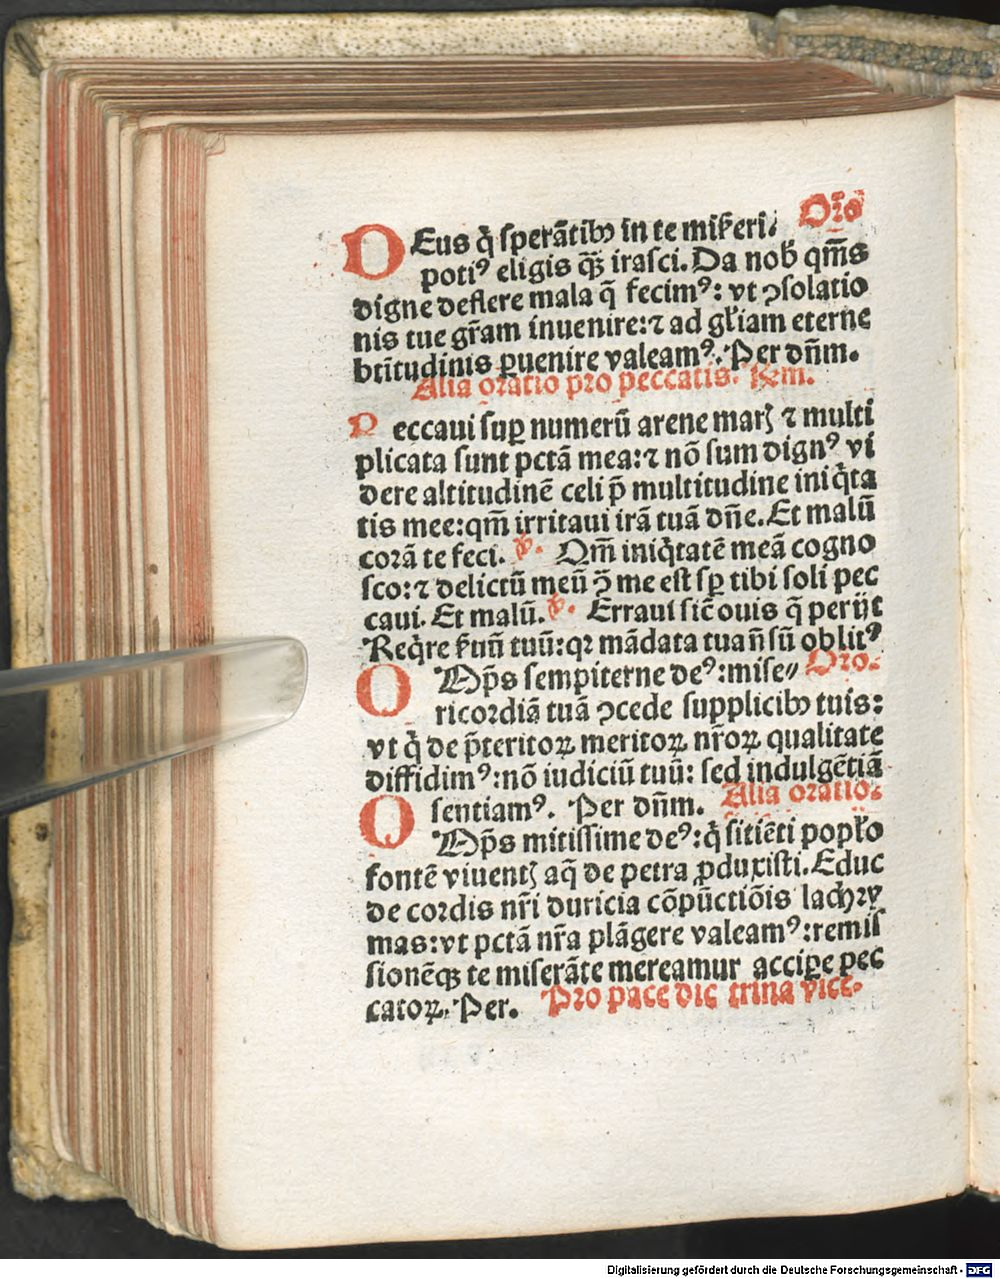 Oro
DEus q̇ sperātibꝰ in te miẜeri⸗
potiꝰ eligis qꝫ irasci. Da nob̾ qm̄s
digne deflere mala q̄ fecimꝰ: vt ꝯsolatio
nis tue gr̄am inuenire: ⁊ ad gl̄iam eterne
bt̄itudinis ꝑuenire valeamꝰ. Per dn̄m.
Alia oratio pro peccatis. Rm.
Peccaui suꝑ numerū arene marꝭ ⁊ multi
plicata sunt pctā mea: ⁊ nō sum dignꝰ vi
dere altitudinē celi p̄ multitudine iniq̇ta
tis mee: qm̄ irritaui irā tuā dn̄e. Et malū
corā te feci. ℣. Qm̄ iniq̇tatē meā cogno
sco: ⁊ delictū meū ꝯ̄ me est sꝑ tibi soli pec
caui. Et malū. ℣. Erraui sic̄ ouis q̄ perijt
Reqṙe ẜuū tuū: qꝛ mādata tua n̄ sū oblitꝰ
Oro.
OMp̄s sempiterne deꝰ: mise⸗
ricordiā tuā ꝯcede supplicibꝰ tuis:
vt q̇ de p̄teritoꝝ meritoꝝ nr̄oꝝ qualitate
diffidimꝰ: nō iudiciū tuū: sed indulgētiā
sentiamꝰ. Per dn̄m. Alia oratio.
OMp̄s mitissime deꝰ: q̇ sitiēti popl̄o
fontē viuentꝭ aq̄ de petra ꝓduxisti. Educ
de cordis nr̄i duricia cōpūctiōis lachry
mas: vt pctā nr̄a plāgere valeamꝰ: remis
sionēqꝫ te miserāte mereamur accipe pec
catoꝝ. Per. Pro pace dic trina vice.
Digitalisierung gefördert durch die Deutsche Forschungsgemeinschaft - DFG